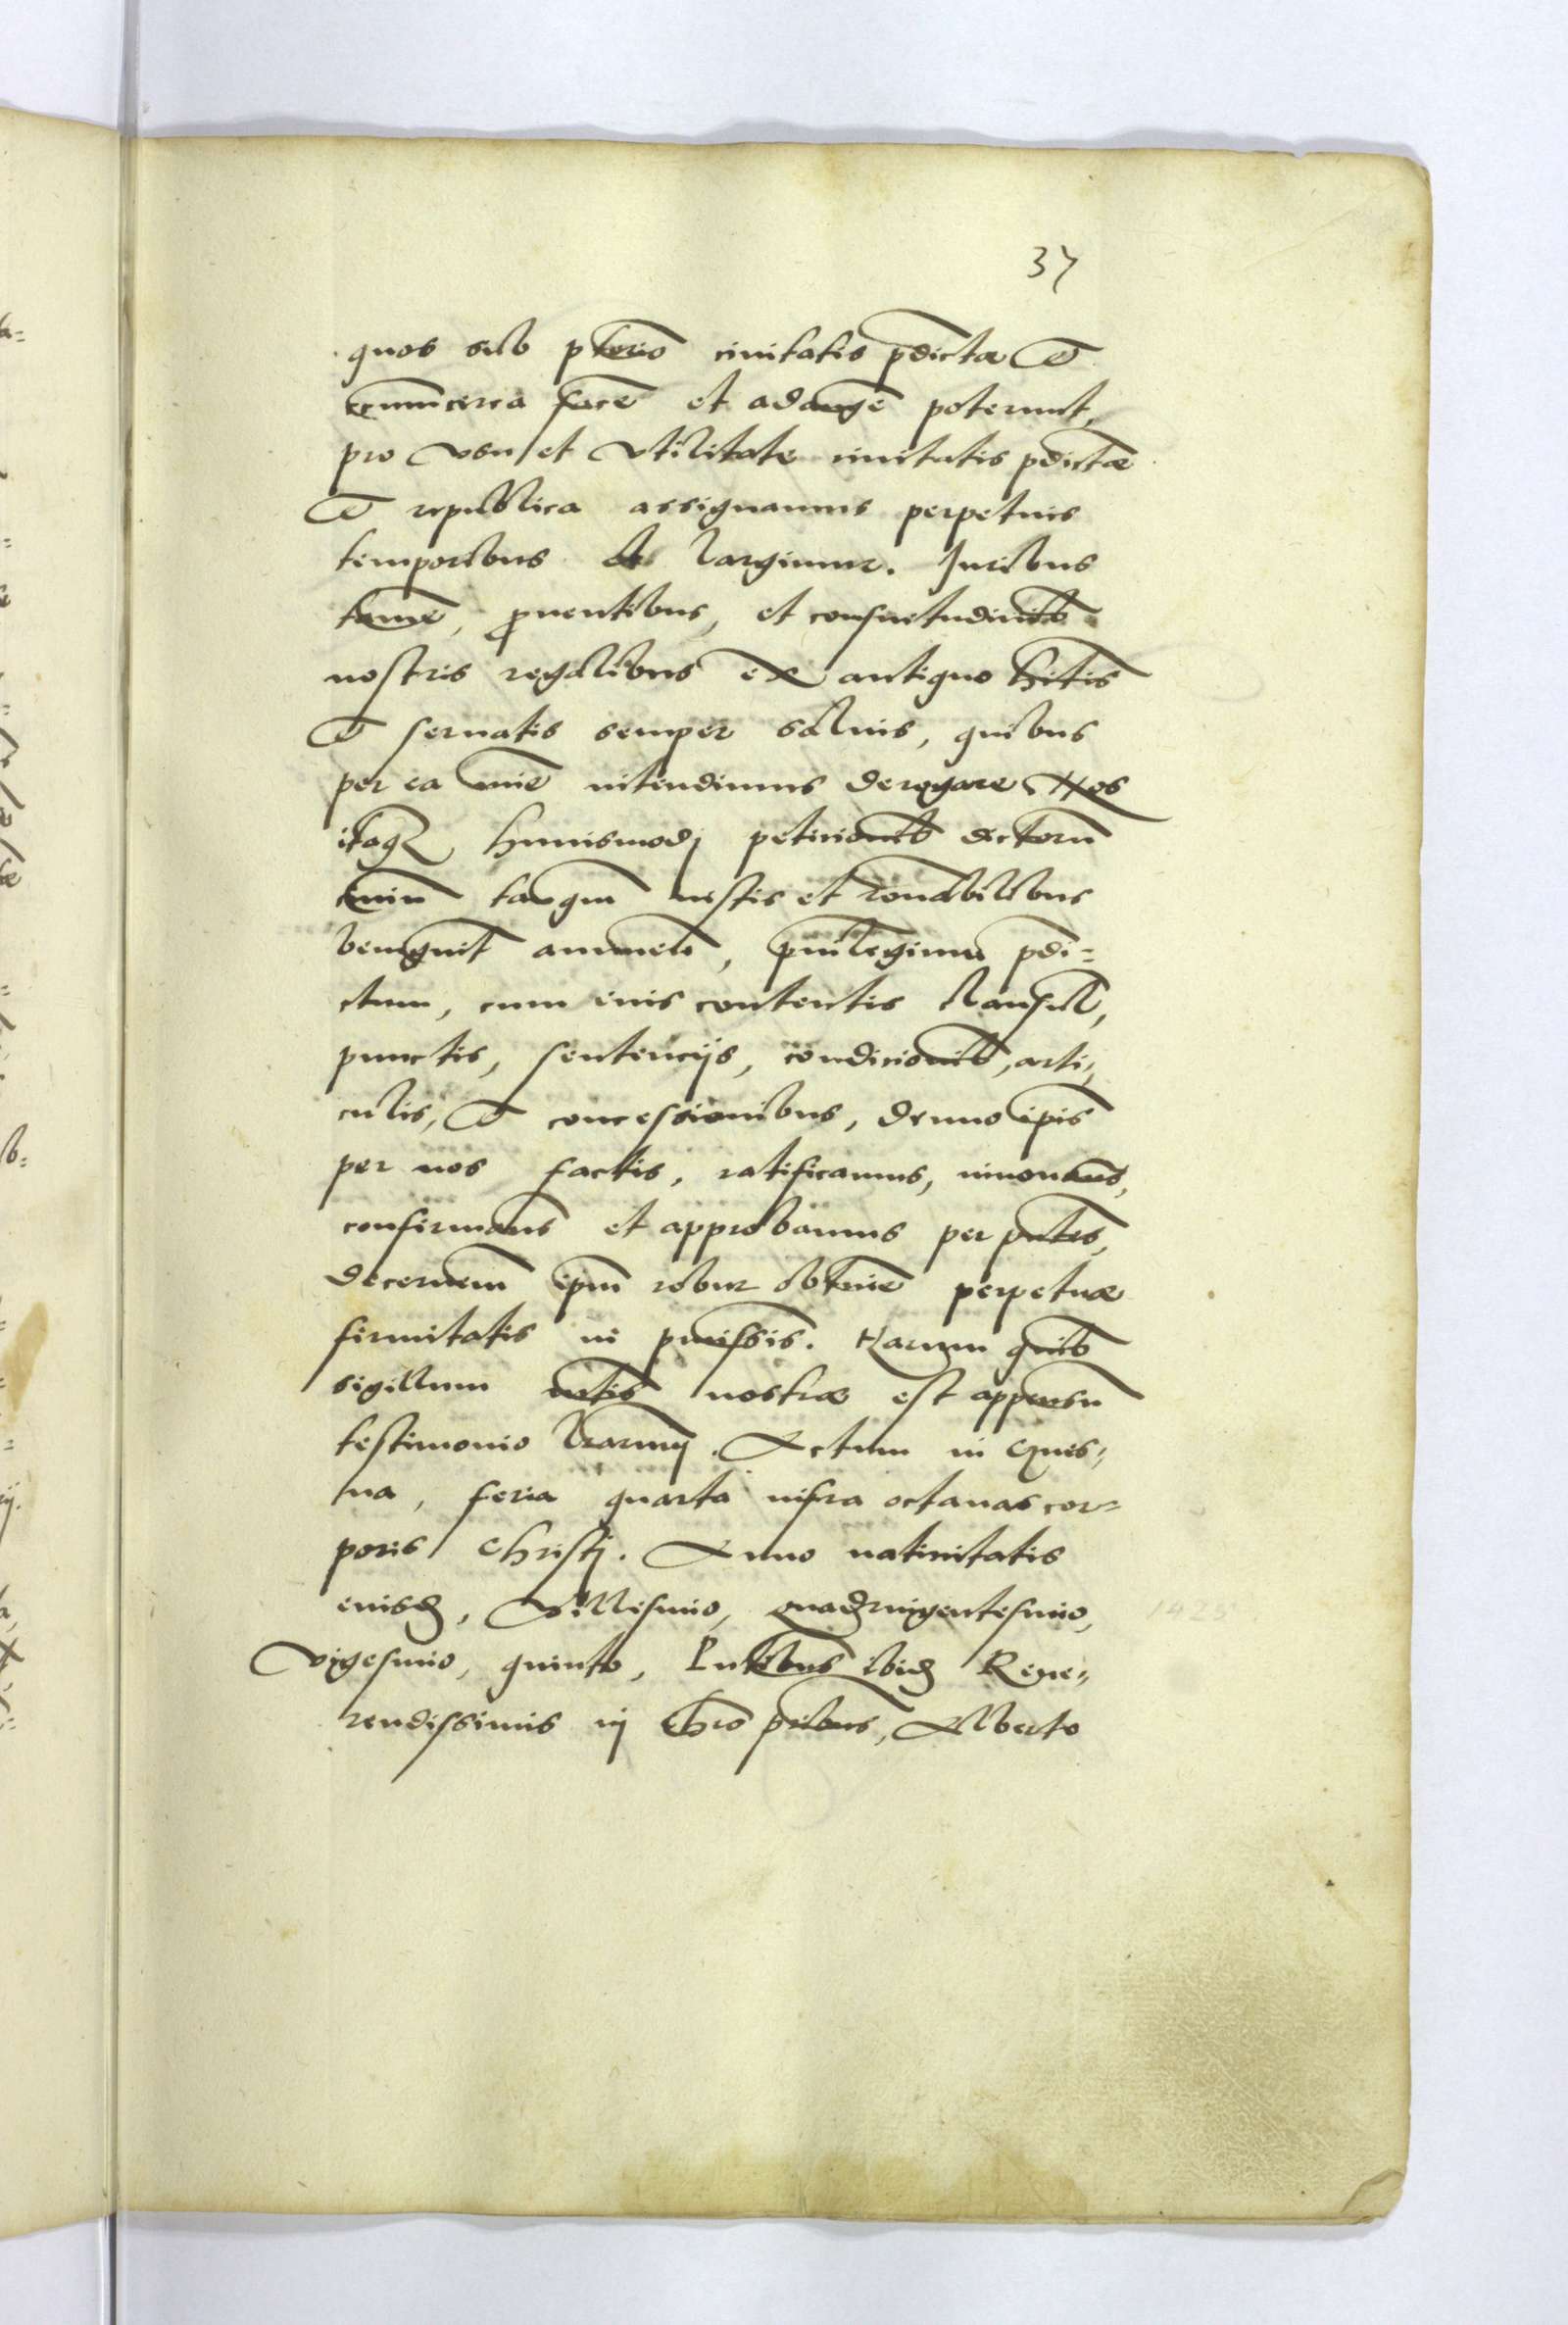 37
quos sub ptorio ciuitatis pdictæ et
circumcirca face et adauge poterunt,
pro vsu et vtilitate ciuitatis pdictæ
et republica assignamus perpetuis
temporibus et largimur. Juribus
tame, prouentibus, et consuetudinib
nostris regalibus ex antiquo hitis
et seruatis semper saluis, quibus
per ea intendimus derogare Nos
itaq huiusmodj peticionib dictoru
ciuiu tanqm iustis et ronabilibus
benignit annuen, priuilegium pdi=
ctum, cum eius contentis clausul,
punctis, sentencijs, condicionib, arti,
culis, et concessionibus, denuo ipis
per nos factis, ratificamus, innouams,
confirmams et approbamus per pntes,
decernem ipm robur obtine perpetuæ
firmitatis in pmissis. Harum quib
sigillum mtis nostræ est appensu
testimonio lrarumj. Actum in Gnes,
na, feria quarta infra octauas cor=
poris Christj. Anno natiuitatis
eiusd, Millesimo, quadringentesimo,
1425
vigesimo, quinto, Pntibus ibid Reue,
rendissimis in Chro pribus, Alberto